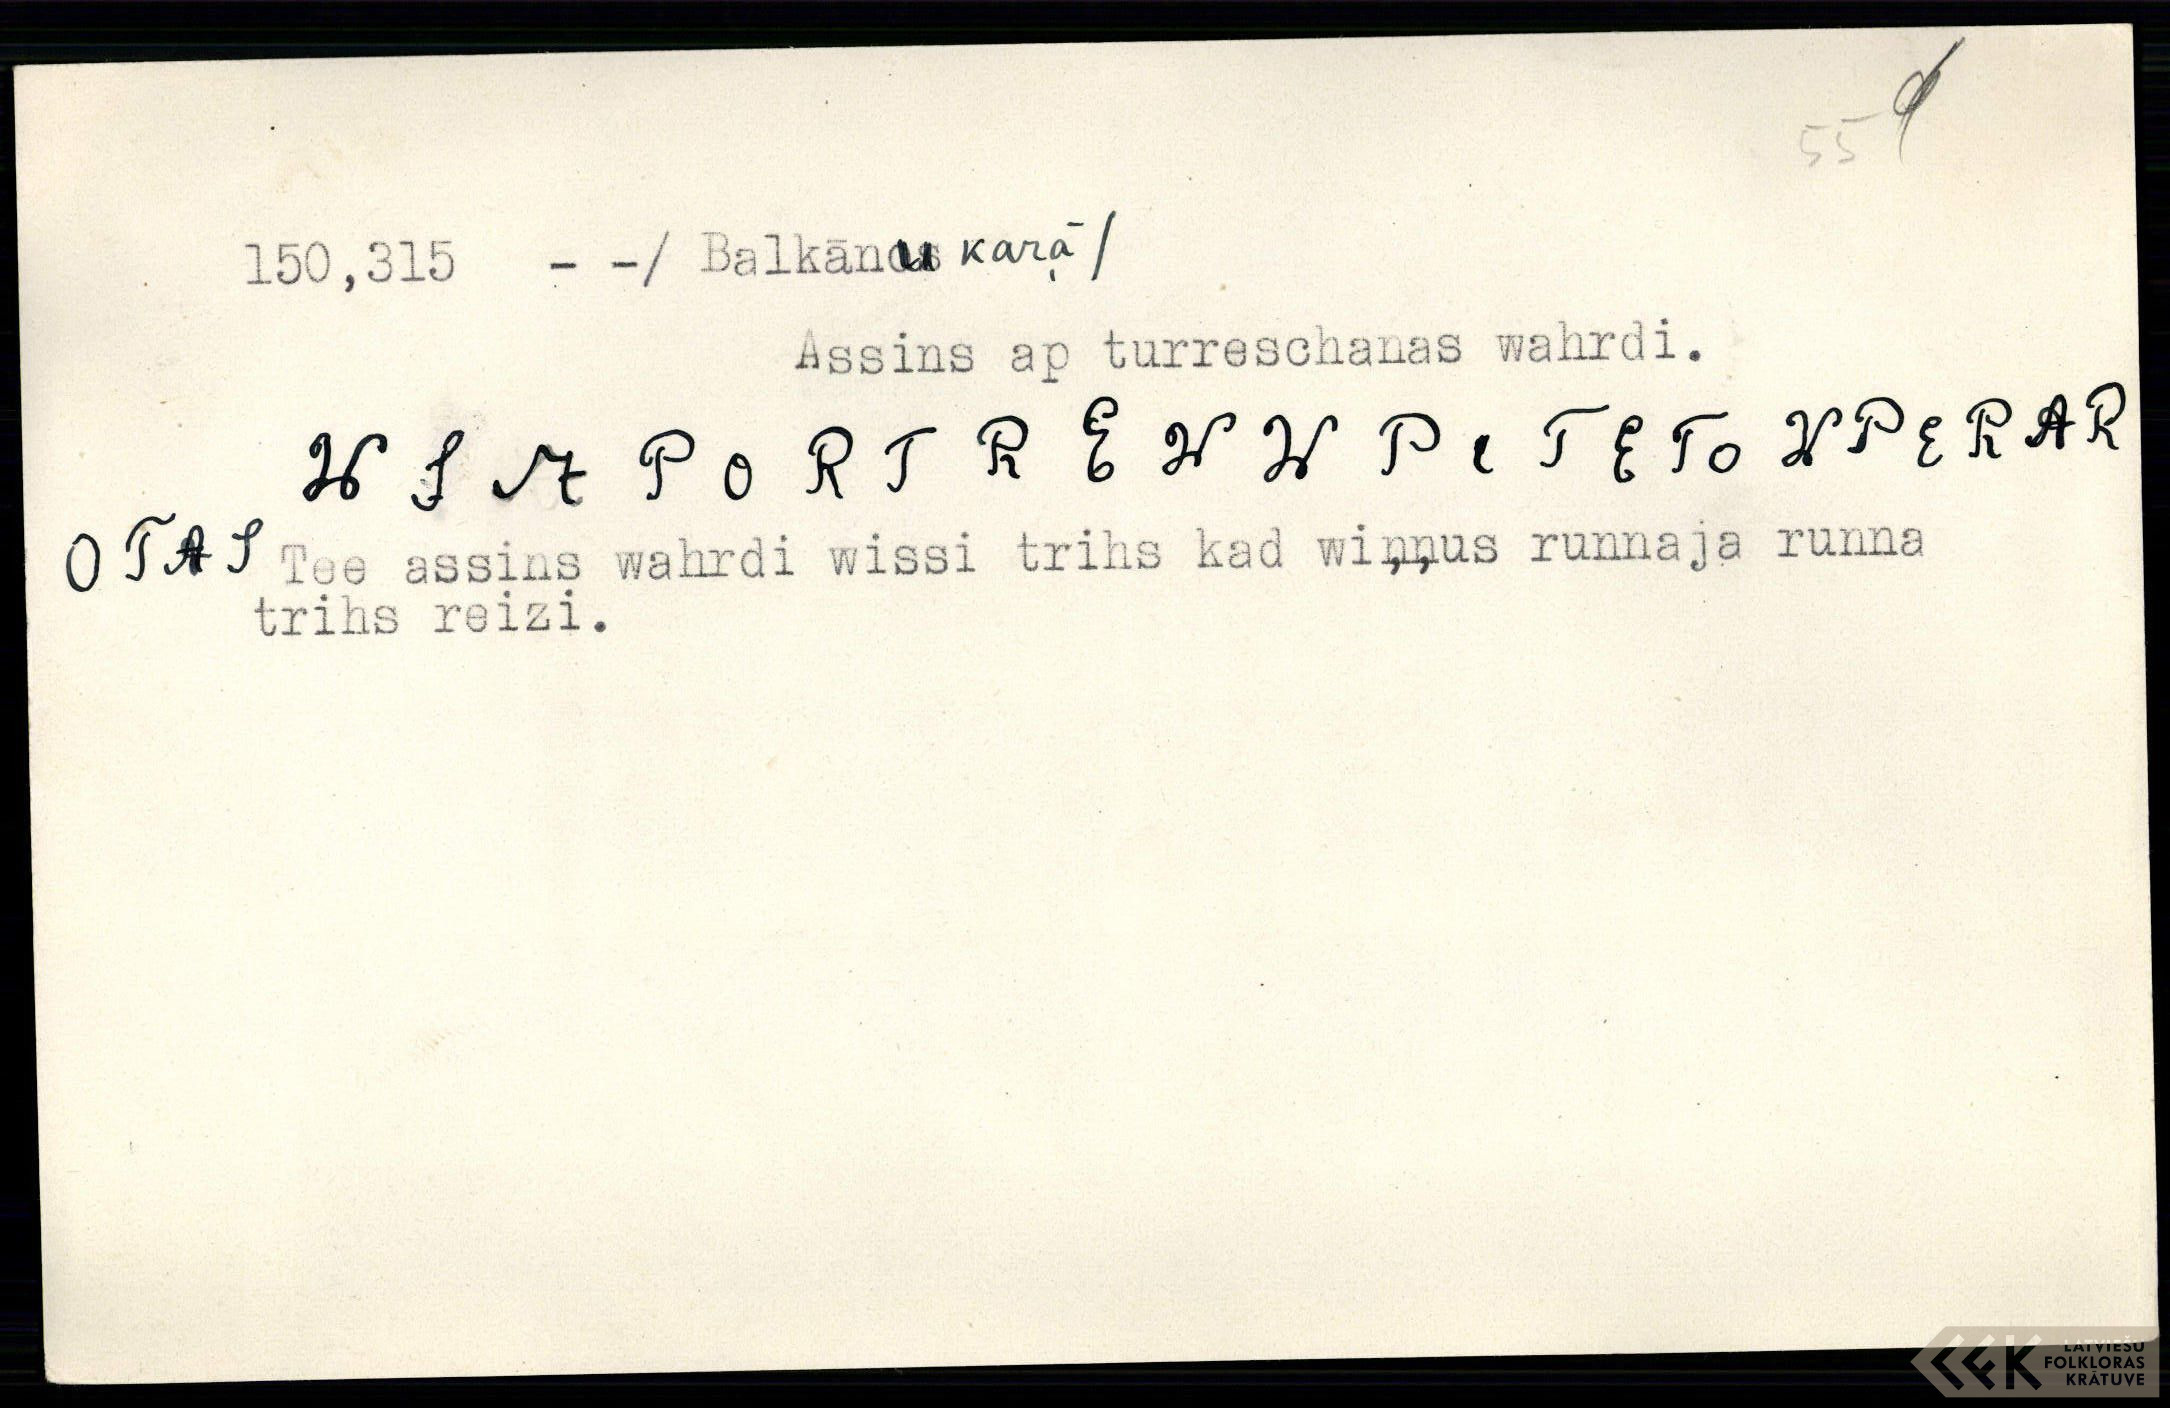 55
150,315 - -/ Balkānu kaŗā/
Assins ap turreschanas wahrdi.
W S A P O R T R E W W P i T E T O W P E R A R
O T A S Tee assins wahrdi wissi trihs kad wiņņus runnaja runna
trihs reizi.
LATVIEŠU
FOLKLORAS
KRĀTUVE